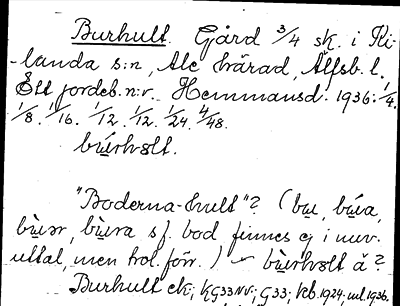 Burhult. Gård 3/4 sk. i Ki-
landa s:n, Ale härad, Älfsb. l.
Ett jordeb. n:r. Hemmansd. 1936: 1/4.
1/8. 1/16. 1/12. 1/12. 1/24. 4/48.
bu̇rhʋlt.
"Boderna-hult"? (bu̇, bu̇a,
bu̇ər, bu̇ra sf. bod finnes ej i nuv.
uttal, men trol. förr.)
Burhult ek; G33; Kb. 1924; utl. 1936.